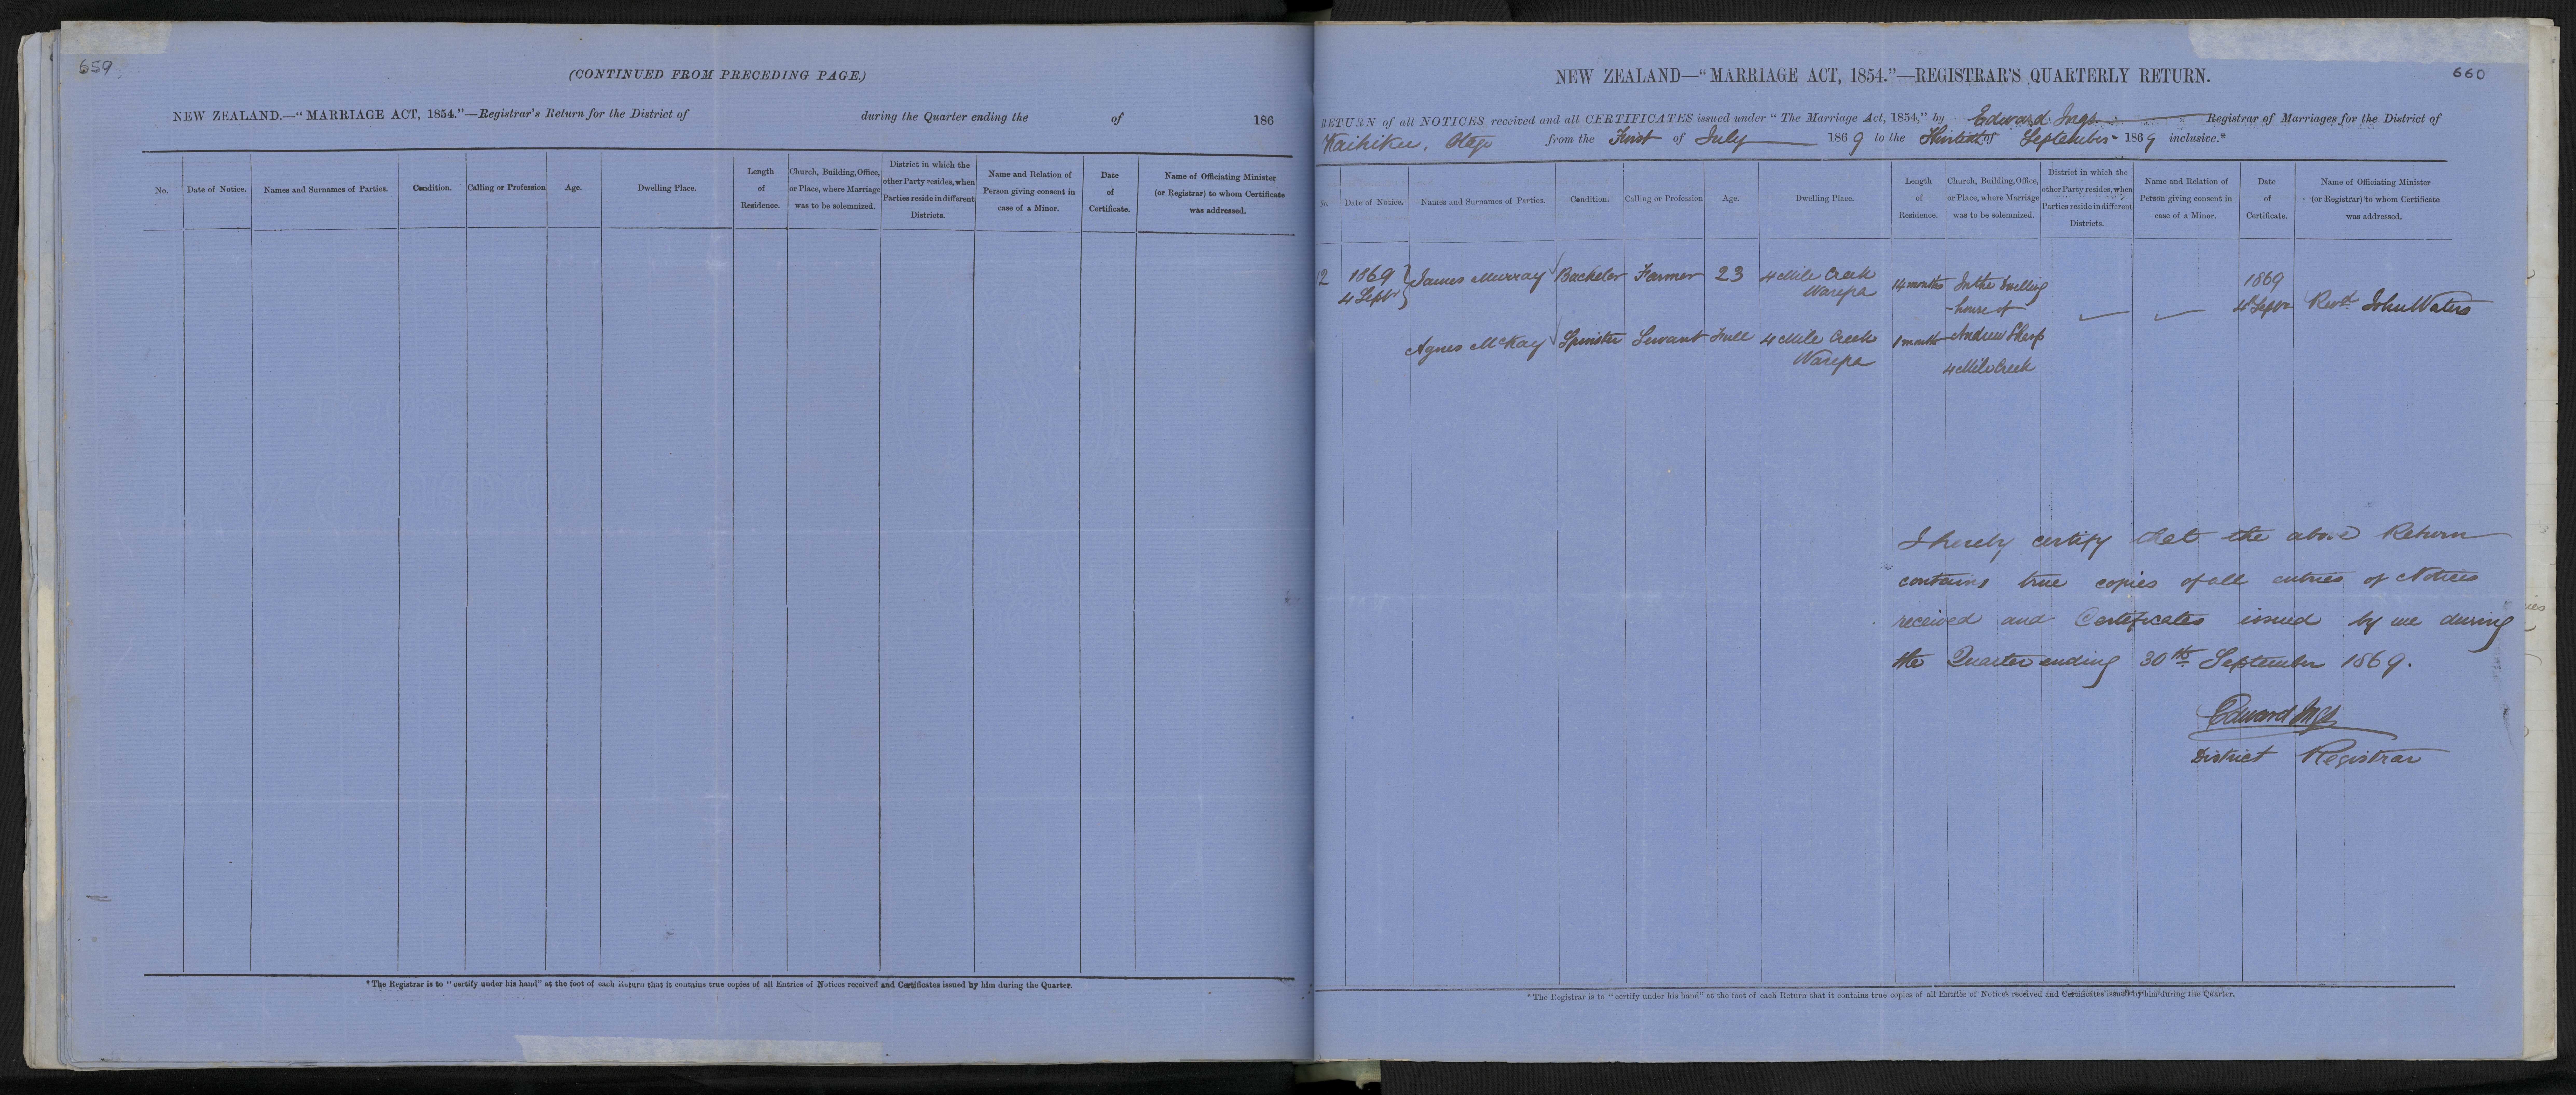 659
(CONTINUED FROM PRECEDING PAGE.)
NEW ZEALAND.—"MARRIAGE ACT, 1854."—Registrar's Return for the District of during the Quarter ending the of 186
No. Date of Notice. Names and Surnames of Parties. Condition. Calling or Profession Age. Dwelling Place. Length of Residence. Church, Building, Office, or Place, where Marriage was to be solemnized. District in which the other Party resides, when Parties reside in different Districts. Name and Relation of Person giving consent in case of a Minor. Date of Certificate. Name of Officiating Minister (or Registrar) to whom Certificate was addressed.
*The Registrar is to "certify under his hand" at the foot of each Return that it contains true copies of all Entries of Notices received and Certificates issued by him during the Quarter.
660
NEW ZEALAND—"MARRIAGE ACT, 1854."—REGISTRAR'S QUARTERLY RETURN.
RETURN of all NOTICES received and all CERTIFICATES issued under "The Marriage Act, 1854," by Edward Ings Registrar of Marriages for the District of
Waihiku, Otago from the First of July 1869 to the of September 1869 inclusive.*
No. Date of Notice. Names and Surnames of Parties. Condition. Calling or Profession Age. Dwelling Place. Length of Residence. Church, Building, Office, or Place, where Marriage was to be solemnized. District in which the other Party resides, when Parties reside in different Districts. Name and Relation of Person giving consent in case of a Minor. Date of Certificate. Name of Officiating Minister (or Registrar) to whom Certificate was addressed.
12 1869 4 Septr James Murray Bachelor Farmer 23 4 Mile Creek Warepa 14 months In the dwelling house of Andrew Sharp 4 Mile Creek 1869 4 Septr Revd. John Waters
Agnes McKay Spinster Servant Full 4 Mile Creek Warepa 1 month
I hereby certify that the above Return
contains true copies of all entries of Notices
received and Certificates issued by me during
the Quarter ending 30th September 1869.
Edward Ings
District Registrar
*The Registrar is to "certify under his hand" at the foot of each Return that it contains true copies of all Entries of Notices received and Certificates issued by him during the Quarter.